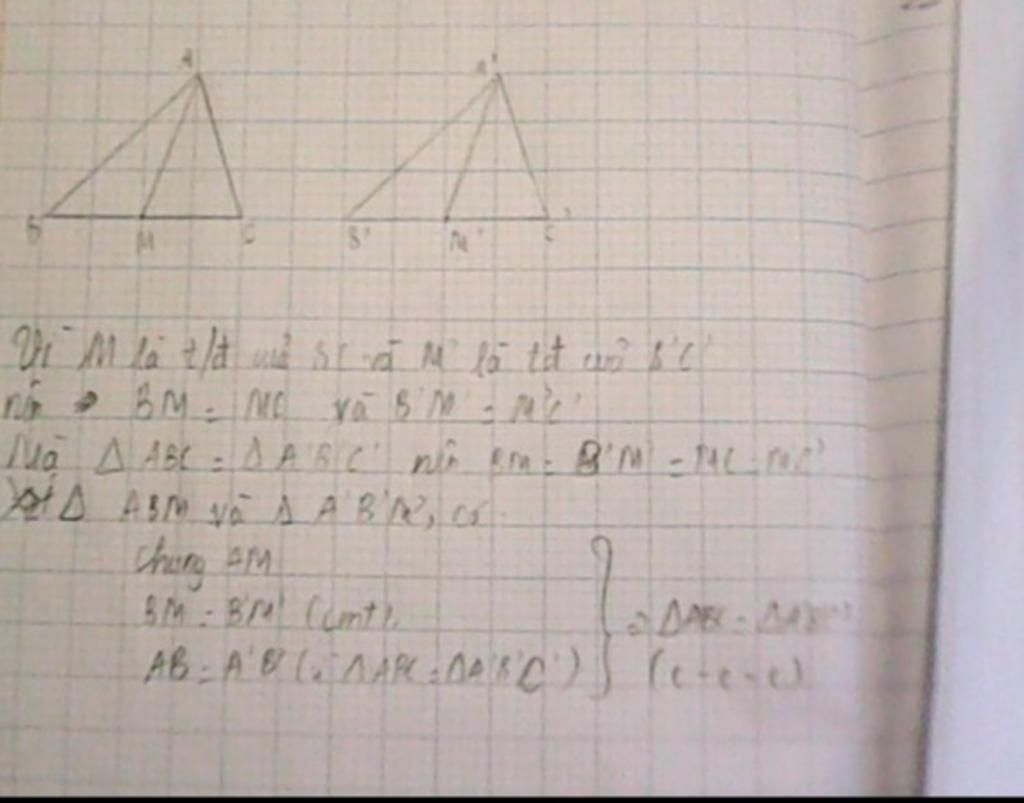 A A'
B M C B' M' C'
Vì M là t/đ của BC và M' là tđ của B'C'
nên BM = MC và B'M' = M'C'
Mà Δ ABC = Δ A'B'C' nên BM = B'M' = MC = M'C'
Xét Δ ABM và Δ A'B'M', có
chung AM
BM = B'M' (cmt).
AB = A'B' (Δ ABC = ΔA'B'C') } => ΔABC = ΔA'B'C'
(c-c-c)